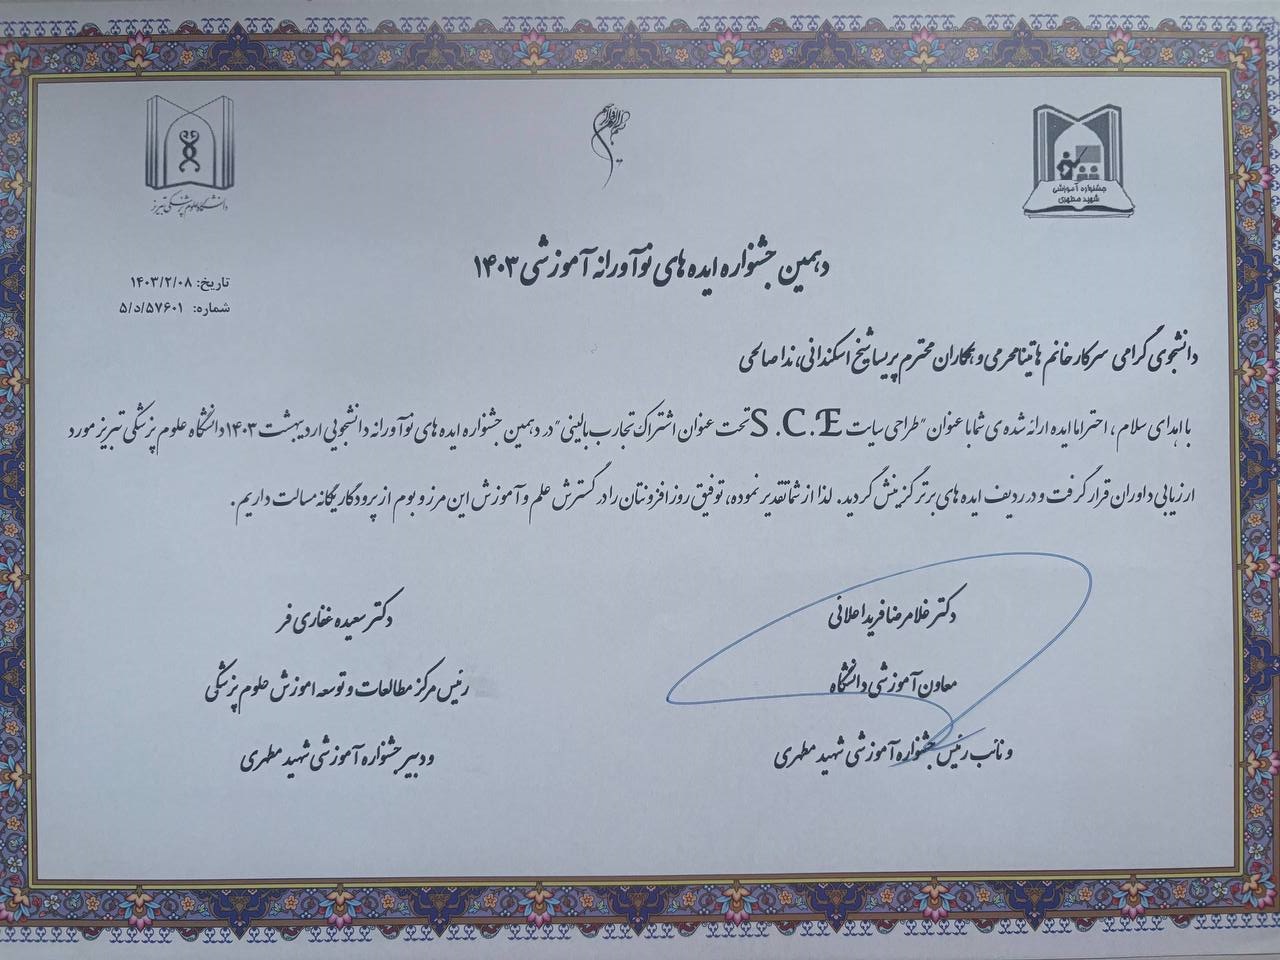 بسم الله الرحمن الرحیم
جشنواره آموزشی
شهید مطهری
دانشگاه علوم پزشکی تبریز
دهمین جشنواره ایده های نوآورانه آموزشی ۱۴۰۳
تاریخ: ۱۴۰۳/۲/۰۸
شماره: ۵/د/۵۷۶۰۱
دانشجوی گرامی سرکار خانم هانیتا محرمی و همکاران محترم پریسا شیخ اسکندانی، ندا صالحی
با اهدای سلام، احتراما ایده ارائه شده ی شما با عنوان "طراحی سایت S.C.E تحت عنوان اشتراک تجارب بالینی" در دهمین جشنواره ایده های نوآورانه دانشجویی اردیبهشت ۱۴۰۳ دانشگاه علوم پزشکی تبریز مورد
ارزیابی داوران قرار گرفت و در ردیف ایده های برتر گزینش گردید. لذا از شما تقدیر نموده، توفیق روزافزونتان را در گسترش علم و آموزش این مرز و بوم از پرودگار یگانه مسالت داریم.
دکتر غلامرضا فریداعلائی
معاون آموزشی دانشگاه
و نائب رئیس جشنواره آموزشی شهید مطهری
دکتر سعیده غفاری فر
رئیس مرکز مطالعات و توسعه اموزش علوم پزشکی
و دبیر جشنواره آموزشی شهید مطهری